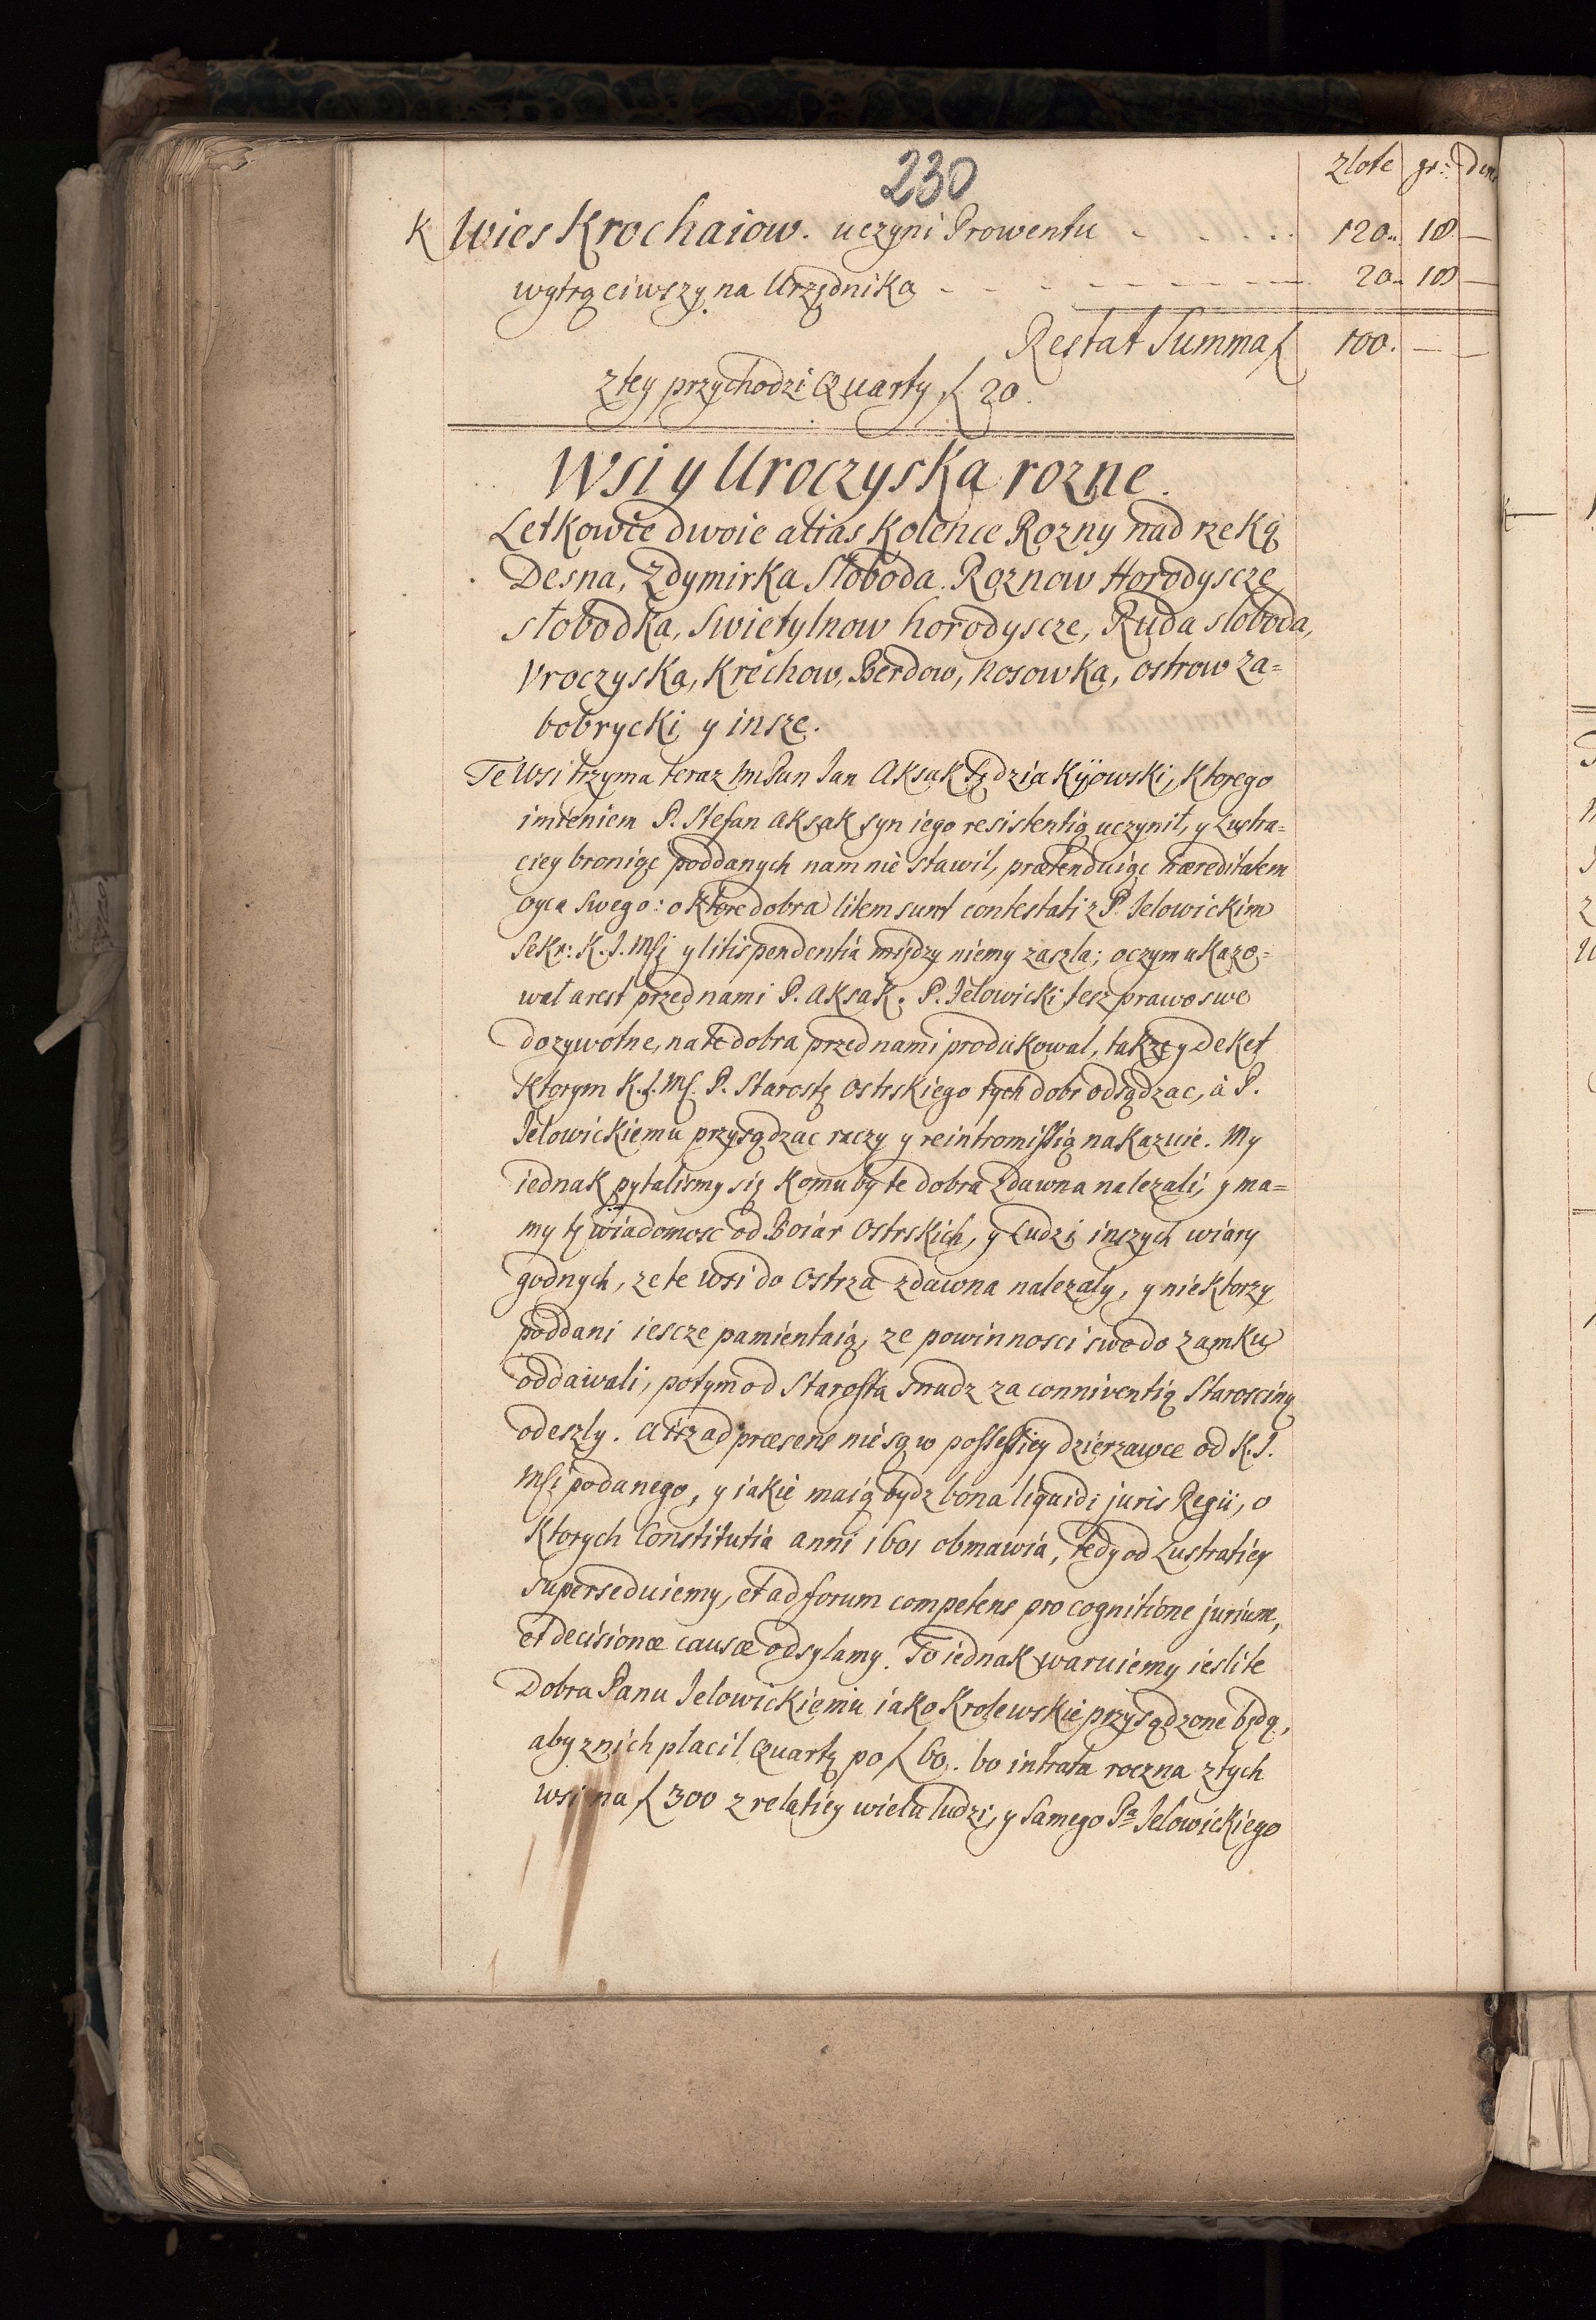 230
zlote gr: den
K Wies Krochaiow. uczyni Prowentu 120 18 —
wytrąciwszy na Urzędnika 20 18 —
Restat Summa f 100. — —
z tey przychodzi Quarty f 20.
Wsi y Uroczyska rozne.
Letkowce dwoie alias Kolence Rozny nad rzeką
Desna, Zdymirka Słoboda. Roznow Horodyscze
słobodka, Swietylnow horodyscze, Ruda słoboda,
Vroczyska, Krechow, Berdow, Nosowka, ostrow za=
bobrycki y insze.
Te Wsi trzyma teraz ImPan Jan Aksak Sędzia Kijowski, ktorego
imieniem P. Stefan Aksak syn iego resistentią uczynił, y Lustra=
ciey broniąc poddanych nam nie stawił, prætenduiąc hæreditatem
oyca swego: o ktore dobra litem sunt contestati z P. Jelowickim
Sekr: K. J. Msi y litis pendentia między niemy zaszla; oczym ukazo=
wał arest przed nami P. Aksak. P. Jelowicki tesz prawo swe
dozywotne, na te dobra przed nami produkowal, takze y Deket
ktorym K. J. Ms. P. Starostę Ostrskiego tych dobr odsądzac, à P.
Jelowickiemu przysądzac raczy y reintromissią nakazuie. My
iednak pytalismy się komu by te dobra zdawna nalezali, y ma=
my tę wiadomosc od Boiar Ostrskich, y Ludzi inszych wiary
godnych, ze te wsi do Ostrza zdawna nalezały, y niektorzy
poddani iescze pamientaią, ze powinnosci swe do zamku
oddawali, potym od Starosta snadz za conniventią Starosciną
odeszly. A isz ad præsens nie są w possessiey dzierzawce od K. J.
Msi podanego, y iakie maią bydz bona liquidi juris Regii, o
ktorych Constitutia anni 1601 obmawia, tedy od Lustratiey
superseduiemy, et ad forum competens pro cognitione jurium,
et decisionæ causæ odsylamy. To iednak waruiemy iesli te
Dobra Panu Jelowickiemu iako Krolewskie przysądzone będą,
aby z nich placil Quartę po f 60. bo intrata roczna z tych
wsi na f 300 z relatiey wiela ludzi, y samego Pa Jelowickiego